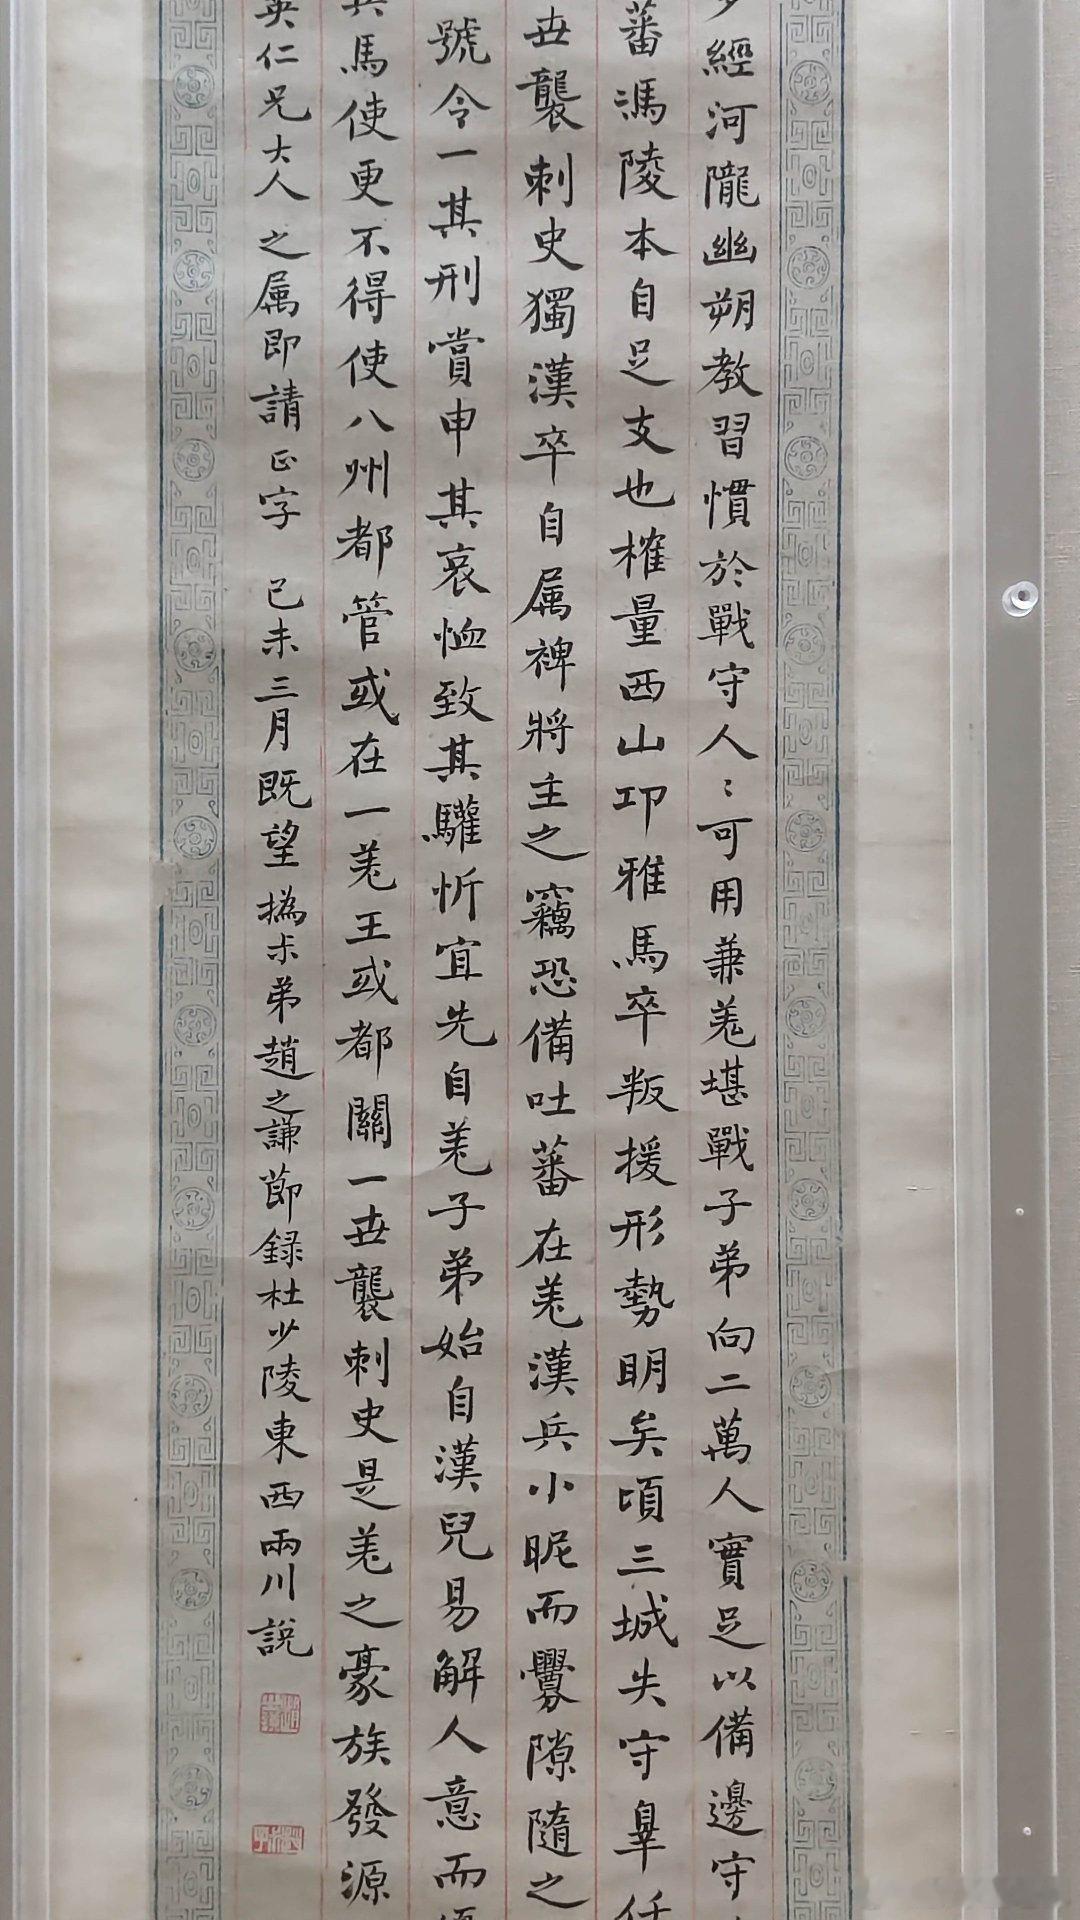 經河隴幽朔教習慣於戰守人〻可用兼羌堪戰子弟向二萬人實足以備邊守
蕃馮陵本自足支也榷量西山邛雅馬卒叛援形勢明矣頃三城失守辠任
世襲刺史獨漢卒自属裨將主之竊恐備吐蕃在羌漢兵小昵而釁隙隨之
號令一其刑賞申其哀恤致其驩忻宜先自羌子弟始自漢兒易解人意而優
兵馬使更不得使八州都管或在一羌王或都關一世襲刺史是羌之豪族發源
英仁兄大人之属即請正字 己未三月既望撝尗弟趙之謙節録杜少陵東西兩川説